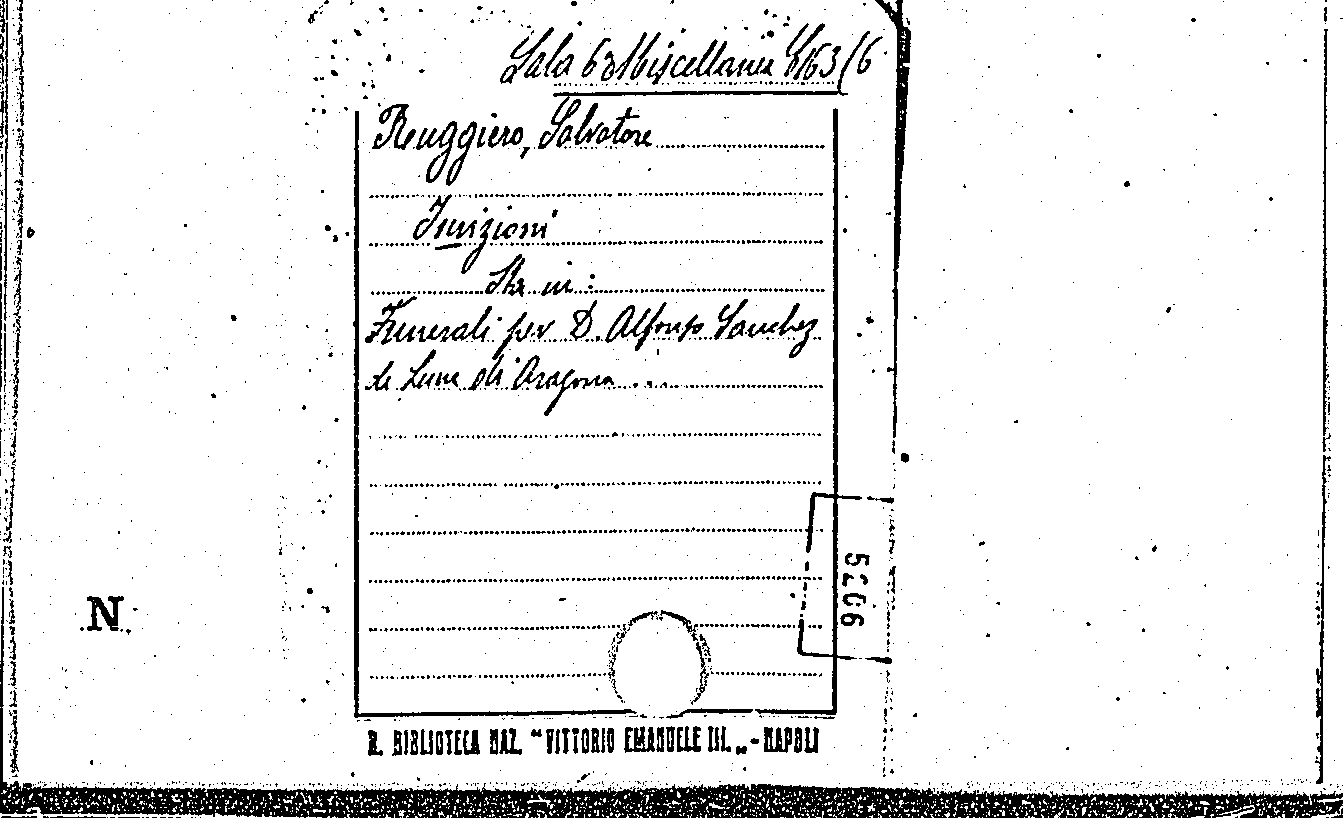 Sala 6ª Miscellanea
Ruggiero, Salvatore
Iscrizioni
Sta in:
Funerali per D. Alfonso Sanchez
de Luna di Aragona ...
5206
N
R. BIBLIOTECA NAZ. "VITTORIO EMANUELE III." - NAPOLI